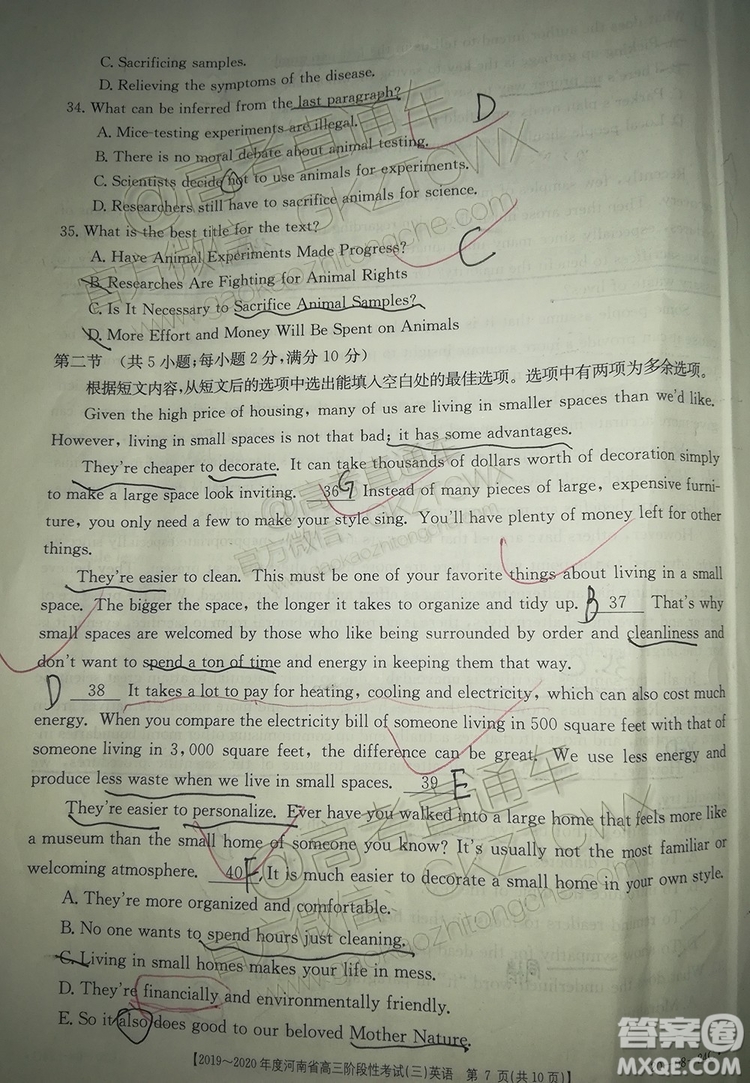 C. Sacrificing samples.
D. Relieving the symptoms of the disease.
34. What can be inferred from the last paragraph?
D
A. Mice-testing experiments are illegal.
B. There is no moral debate about animal testing.
C. Scientists decide not to use animals for experiments.
D. Researchers still have to sacrifice animals for science.
35. What is the best title for the text?
C
A. Have Animal Experiments Made Progress?
B. Researches Are Fighting for Animal Rights
C. Is It Necessary to Sacrifice Animal Samples?
D. More Effort and Money Will Be Spent on Animals
第二节 (共5小题;每小题2分,满分10分)
根据短文内容,从短文后的选项中选出能填入空白处的最佳选项。选项中有两项为多余选项。
Given the high price of housing, many of us are living in smaller spaces than we'd like.
However, living in small spaces is not that bad; it has some advantages.
They're cheaper to decorate. It can take thousands of dollars worth of decoration simply
to make a large space look inviting. 36 G Instead of many pieces of large, expensive furni-
ture, you only need a few to make your style sing. You'll have plenty of money left for other
things.
They're easier to clean. This must be one of your favorite things about living in a small
space. The bigger the space, the longer it takes to organize and tidy up. B 37 That's why
small spaces are welcomed by those who like being surrounded by order and cleanliness and
don't want to spend a ton of time and energy in keeping them that way.
D 38 It takes a lot to pay for heating, cooling and electricity, which can also cost much
energy. When you compare the electricity bill of someone living in 500 square feet with that of
someone living in 3,000 square feet, the difference can be great. We use less energy and
produce less waste when we live in small spaces. 39 E
They're easier to personalize. Ever have you walked into a large home that feels more like
a museum than the small home of someone you know? It's usually not the most familiar or
welcoming atmosphere. 40 F It is much easier to decorate a small home in your own style.
A. They're more organized and comfortable.
B. No one wants to spend hours just cleaning.
C. Living in small homes makes your life in mess.
D. They're financially and environmentally friendly.
E. So it also does good to our beloved Mother Nature.
【2019～2020年度河南省高三阶段性考试(三)英语 第7页(共10页)】
@高考直通车
官方微信:GKZTCWX
www.gaokaozhitongche.com
@高考直通车
官方微信:GKZTCWX
www.gaokaozhitongche.com
答案圈
MXQE.COM